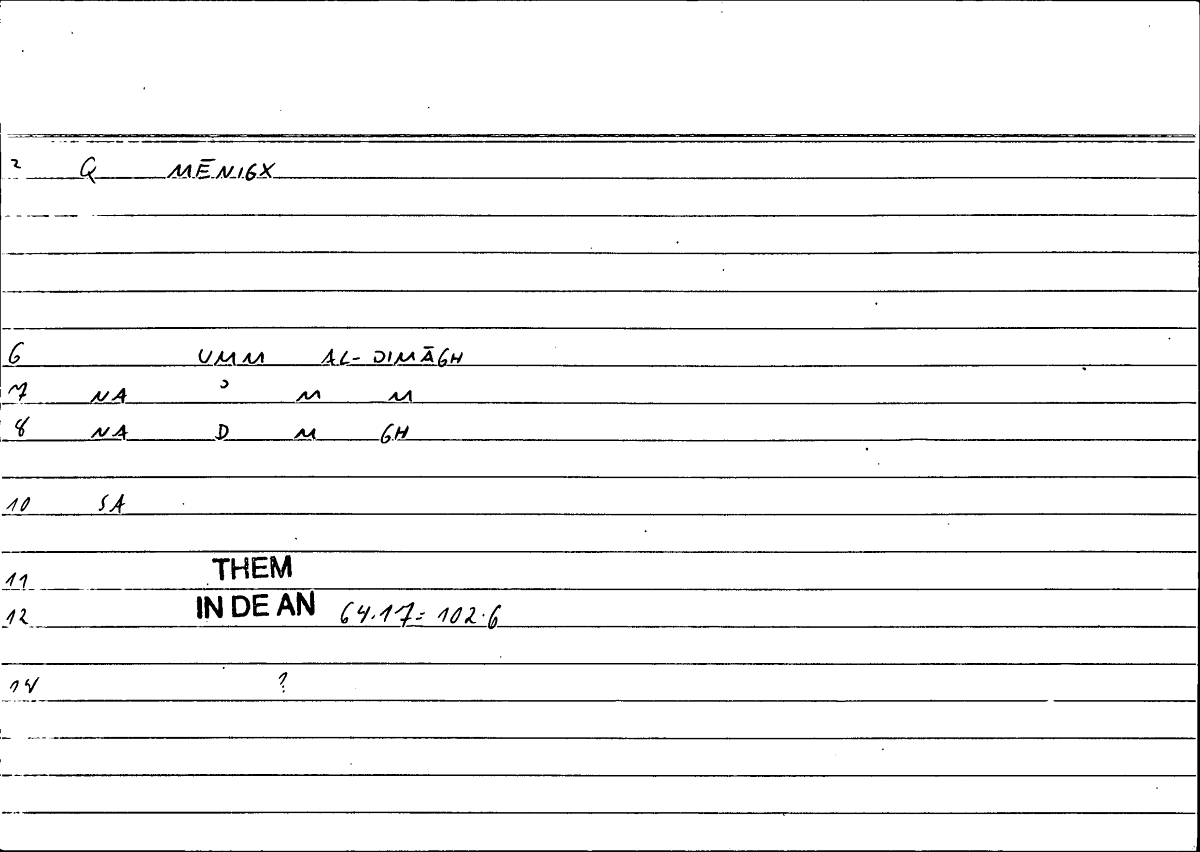 2 Q MĒNIGX
6 UMM AL-DIMĀGH
7 NA ʾ M M
8 NA D M GH
10 SA
11 THEM
12 IN DE AN 64.17= 102.6
14 ?